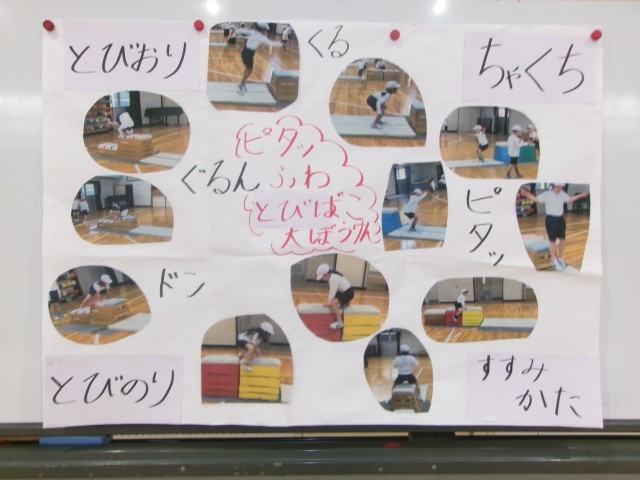 とびおり
くる
ちゃくち
ピタッ
ぐるん
ふわ
とびばこ
大ぼうけん
ピタッ
ドン
とびのり
すすみ
かた